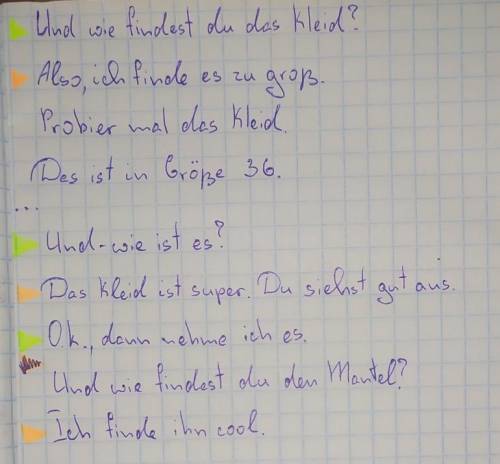 Und wie findest du das Kleid?
Also, ich finde es zu groß.
Probier mal das Kleid.
Das ist in Größe 36.
...
Und - wie ist es?
Das Kleid ist super. Du siehst gut aus.
O.k., dann nehme ich es.
Und wie findest du den Mantel?
Ich finde ihn cool.